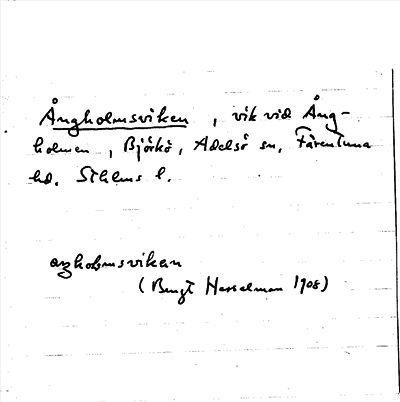 Ångholmsviken, vik vid Ång-
holmen, Björkö, Adelsö sn, Färentuna
hd. Sthlms l.
aŋholmsviken
(Bengt Hesselman 1908)